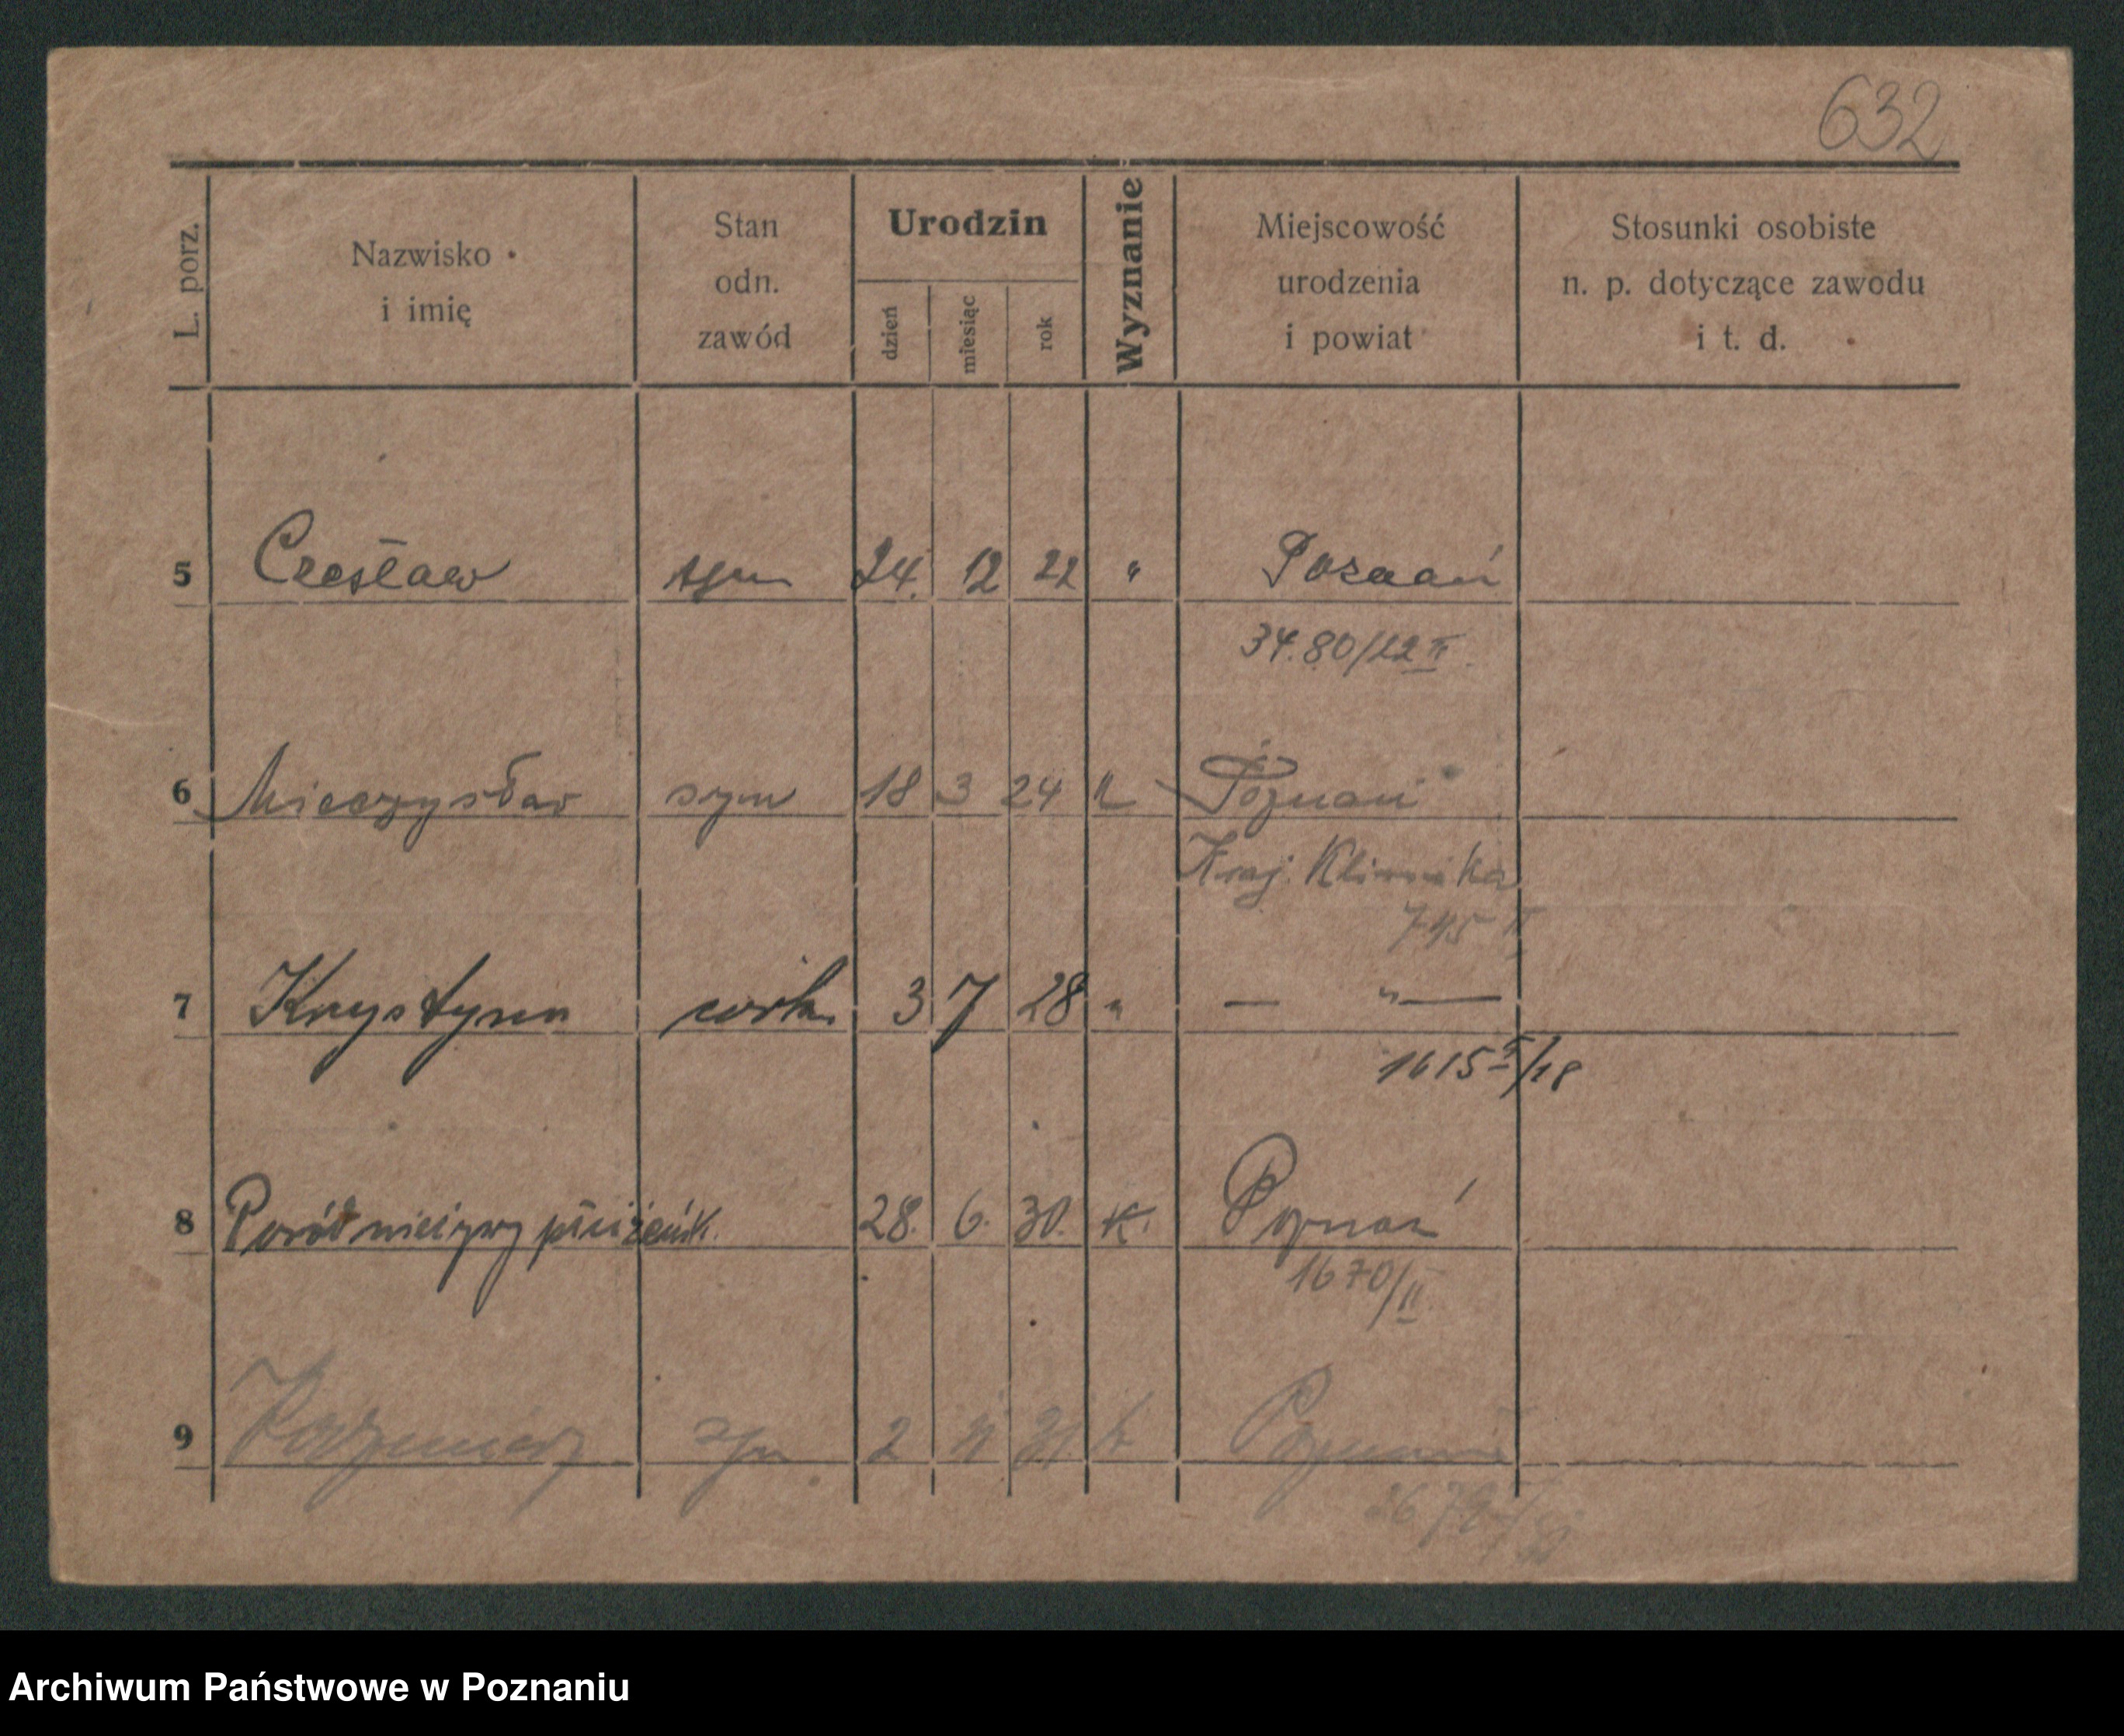 632
L. porz.
Nazwisko
i imię
Stan
odn.
zawód
Urodzin
dzień
miesiąc
rok
Wyznanie
Miejscowość
urodzenia
i powiat
Stosunki osobiste
n. p. dotyczące zawodu
i t. d.
5 Czesław syn 24. 12 22 " Poznań
34.80/22 II.
6 Mieczysław syn 18 3 24 " Poznań
Kraj. Klinika
745 II
7 Krystyna córka 3 7 28 " — " —
1615 II/28
8 Poród nieżywy płci żeńsk. 28. 6. 30. K. Poznań
1670/II
9 Kazimierz syn 2 11 31 k Poznań
Archiwum Państwowe w Poznaniu